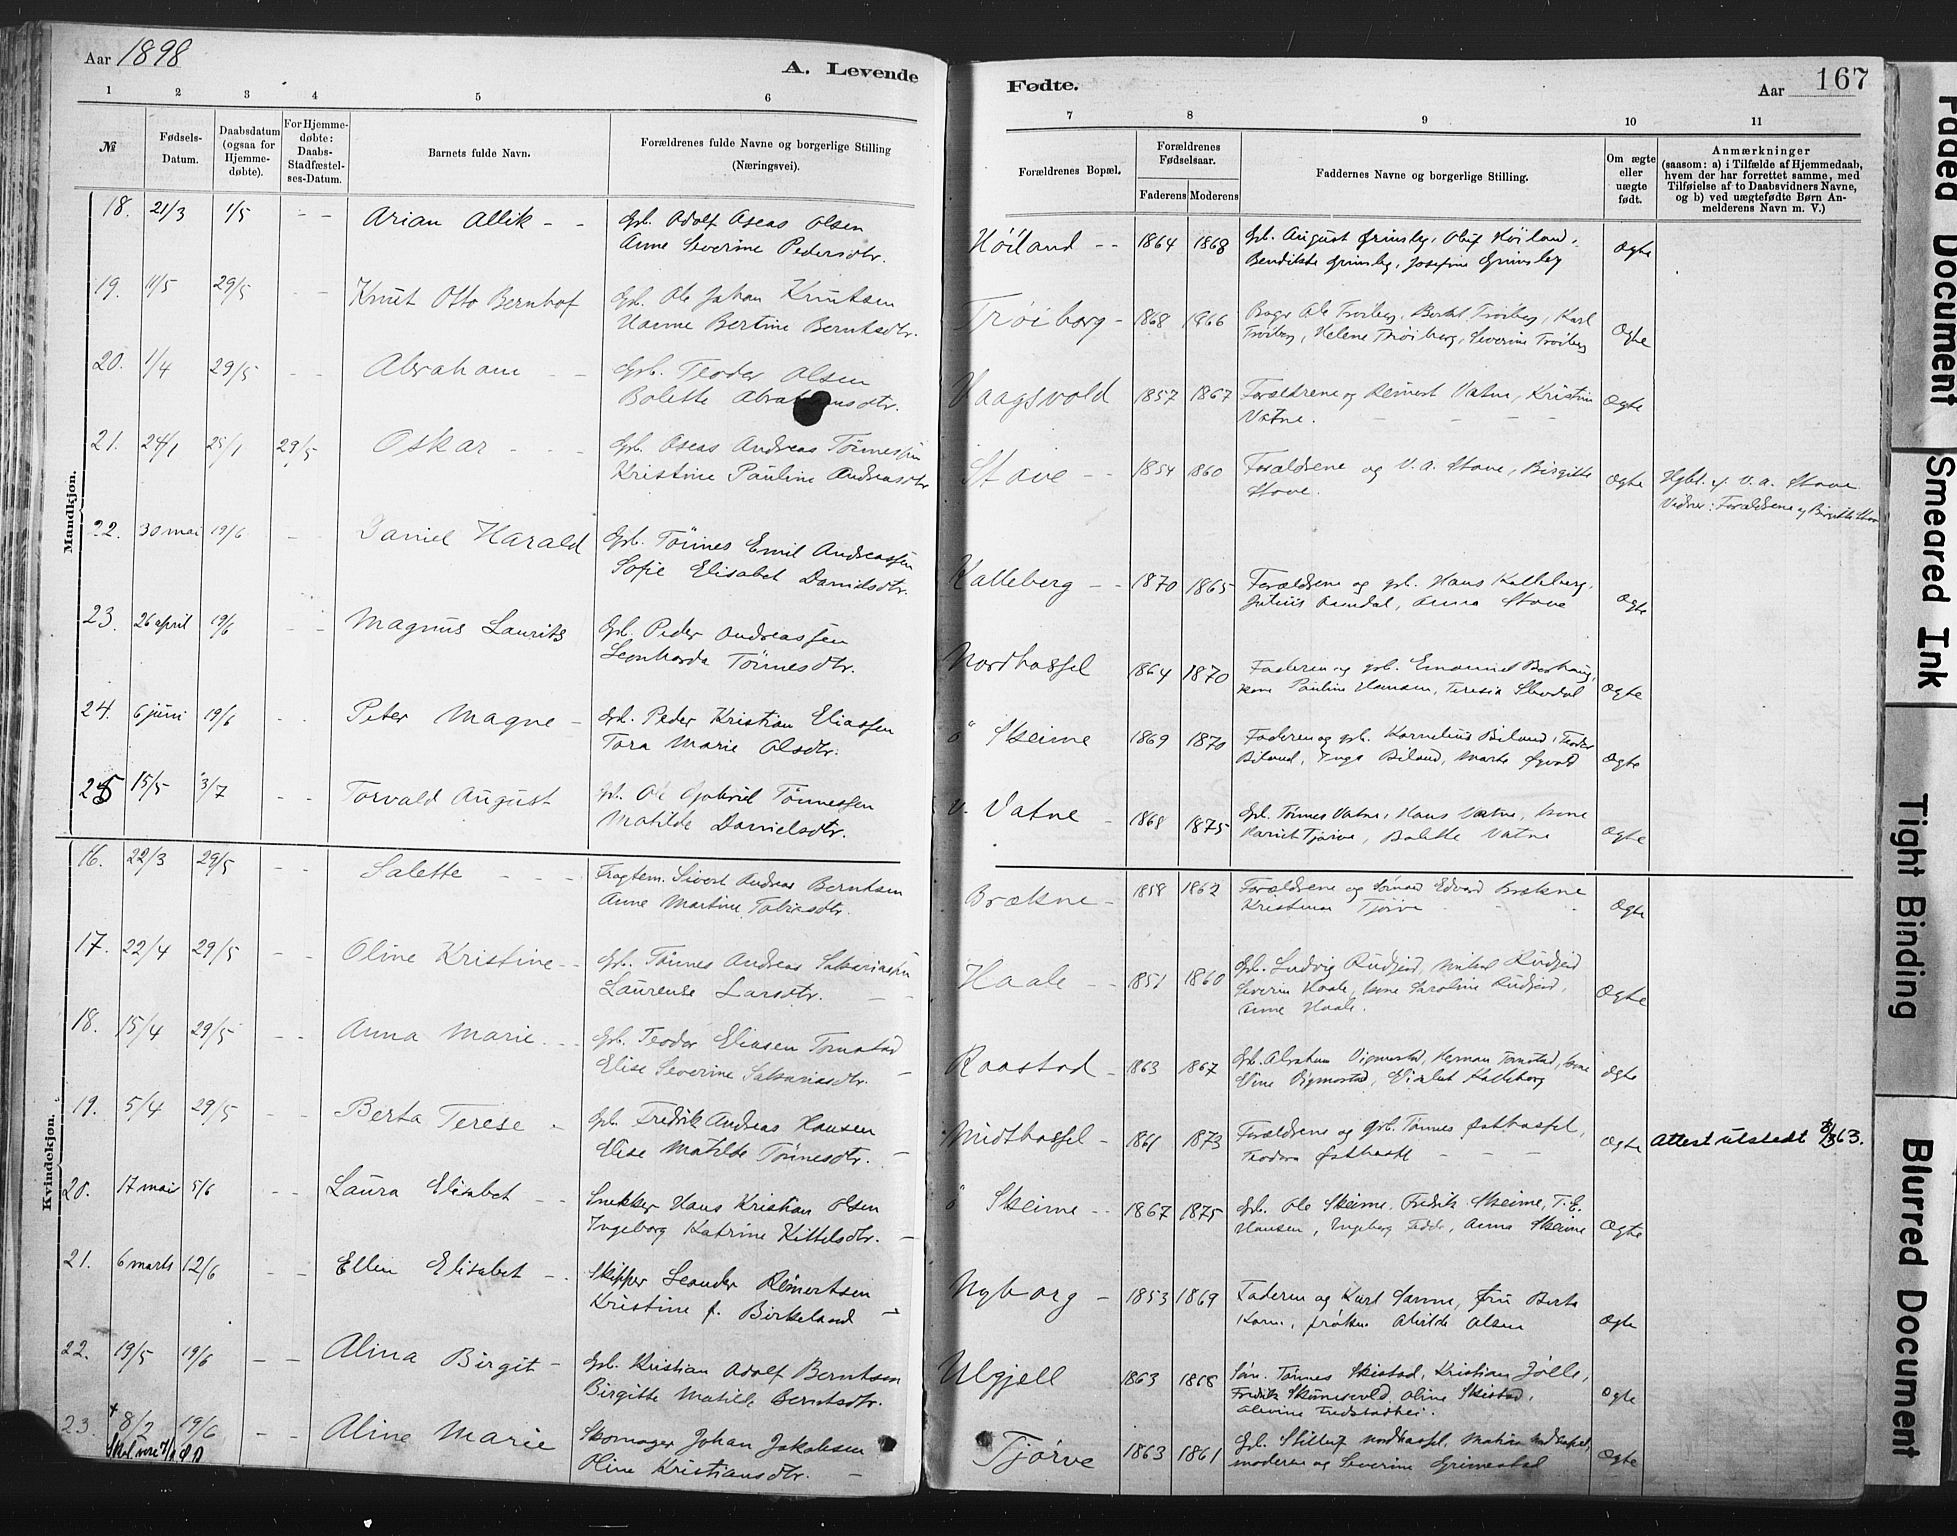 Aar 1898
A. Levende
1 2 3 4 5 6
№
Fødsels-
Datum.
Daabsdatum
(ogsaa for
Hjemme-
døbte).
For Hjemme-
døbte:
Daabs-
Stadfæstel-
ses-Datum.
Barnets fulde Navn.
Forældrenes fulde Navne og borgerlige Stilling
(Næringsvei).
Mandkjøn.
18. 21/3 1/5 - - Arian Allik - - Gbr. Adolf Oseas Olsen
Anne Severine Pedersdtr.
19. 11/5 29/5 - - Knut Otto Bernhof Gbr. Ole Johan Knutsen
Hanne Bertine Berntsdtr.
20. 1/4 29/5 - - Abraham - - Gbr. Teodor Olsen
Bolette Abrahamsdtr.
21. 24/1 25/1 29/5 Oskar - - - Gbr. Oseas Andreas Tønnessen
Kristine Pauline Andreasdtr.
22. 30 mai 19/6 - Daniel Harald Gbr. Tønnes Emil Andreassen
Sofie Elisabet Danielsdtr.
23. 26 april 19/6 - - Magnus Laurits Gbr. Peder Andreassen
Leonharda Tønnesdtr.
24. 6 juni 19/6 - - Peter Magne - Gbr. Peder Kristian Eliassen
Tora Marie Olsdtr.
25 15/5 3/7 - - Torvald August Gbr. Ole Gabriel Tønnessen
Matilde Danielsdtr.
Kvindekjøn.
16. 22/3 29/5 - - Salette - - - Fragtem. Sivert Andreas Berntsen
Anne Martine Tobiasdtr.
17. 22/4 29/5 - - Oline Kristine - - Gbr. Tønnes Andreas
Laurense Larsdtr. - -
18. 15/4 29/5 - - Anna Marie - - Gbr. Teodor Eliasen Tomstad
Elise Severine Sakariasdtr. -
19. 5/4 29/5 - - Berta Terese - Gbr. Fredrik Andreas Hansen
Elise Matilde Tønnesdtr. -
20. 17 mai 5/6 - - Laura Elisabet - - Snekker Hans Kristian Olsen
Ingeborg Katrine Kittelsdtr. -
21. 6 marts 12/6 - - Ellen Elisabet - - Skipper Leander Reimertsen
Kristine f. Birkeland -
22. 19/5 19/6 - - Alina Birgit - Gbr. Kristian Adolf Berntsen
Birgitte Matilde Berntsdtr.
23. 8/2 19/6 - - Aline Marie Skomager Johan Jakobsen
Oline Kristiansdtr. -
Skal være
Fødte.
Aar 167
7 8 9 10 11
Forældrenes Bopæl.
Forældrenes
Fødselsaar.
Faderens Moderens
Faddernes Navne og borgerlige Stilling.
Om ægte
eller
uægte
født.
Anmærkninger
(saasom: a) i Tilfælde af Hjemmedaab,
hvem der har forrettet samme, med
Tilføielse af to Daabsvidners Navne,
og b) ved uægtefødte Børn An-
melderens Navn m. V.)
Høiland - - 1864 1868 Gbr. August Grimsby, Oluf Høiland, Ægte
Bendikte Grimsby, Josefine Grimsby
Trøiborg - 1868 1866 Ole Trøiborg, Bertel Trøiborg, Karl Ægte
Trøiborg, Helene Trøiborg, Severine Trøiborg
Vaagsvold 1857 1867 Forældrene og Reinert Vatne, Kristine Ægte
Vatne. - - -
Stave - - 1854 1860 Forældrene og V. A. Stave, Birgitte Ægte Hjbt. af V. A. Stave.
Stave. Vidner: Forældrene og Birgitte Stave
Kalleberg - - 1870 1865 Forældrene og gbr. Hans Kalleberg, Ægte
Julius Omdal, Anna Stave
Nordhassel 1864 1870 Faderen og gbr. Emanuel Borhaug, Ægte
kone Pauline Hansen, Teresia
ø Skeime 1869 1870 Faderen og gbr. Kornelius Biland, Teodor Ægte
Biland, Inga Biland, Marta
v. Vatne - 1868 1875 Gbr. Tønnes Vatne, Hans Vatne, kone Ægte
Tjørve, Bolette Vatne
Brækne - 1858 1862 Forældrene og Edvard Brækne Ægte
Kristense Tjørve
Haale - - 1851 1860 Gbr. Ludvig Rudjord, Mikal Rudjord Ægte
Severin Haale, kone Karoline Rudjord,
Anne Haale.
Raastad - 1863 1867 Gbr. Abraham Vigmostad, Herman Tomstad, kone Ægte
Eline Vigmostad, Elisabet Kalleberg
Midthassel - 1861 1873 Forældrene og Gbr. Tønnes Østhassel, Ægte Attest utstedt 63.
Teodora Østhassel - - -
ø Skeime - - 1867 1875 Gbr. Ole Skeime, Fredrik Skeime, T. E. Ægte
Hansen, Ingeborg, Anna Skeime
Nyborg - 1853 1869 Faderen og Karl Sanne, fru Berta Ægte
frøken Alvilde Olsen
Ulgjell 1863 1868 Tønnes Skistad, Kristian Jølle, Ægte
Fredrik Skeimevold, Oline Skistad,
Alevine
Tjørve 1863 1861 Gbr. Nordhassel, Ægte
moderen og Severine Grimestad
Faded Document
Smeared Ink
Tight Binding
Blurred Document